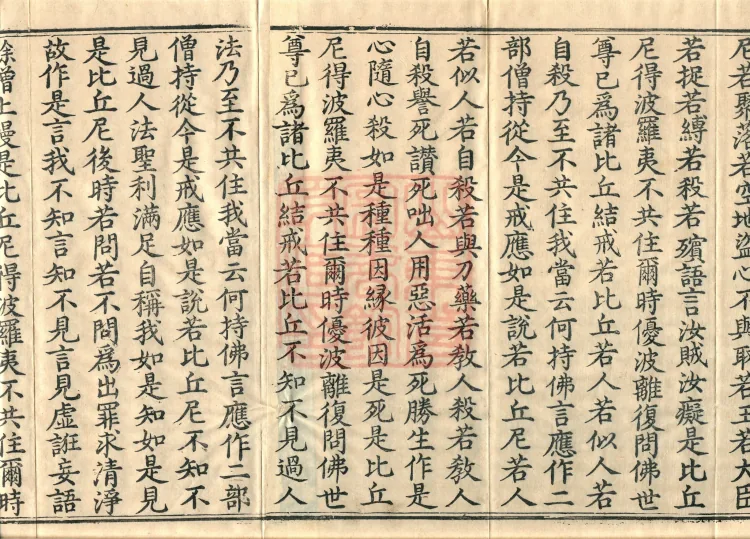 尼若聚落若空地盜心不與取若王若大臣
若捉若縛若殺若殯語言汝賊汝癡是比丘
尼得波羅夷不共住爾時優波離復問佛世
尊已爲諸比丘結戒若比丘若人若似人若
自殺乃至不共住我當云何持佛言應作二
部僧持從今是戒應如是說若比丘尼若人
若似人若自殺若與刀藥若敎人殺若敎人
自殺譽死讃死咄人用惡活爲死勝生作是
心隨心殺如是種種因縁彼因是死是比丘
尼得波羅夷不共住爾時優波離復問佛世
尊已爲諸比丘結戒若比丘不知不見過人
法乃至不共住我當云何持佛言應作二部
僧持從今是戒應如是說若比丘尼不知不
見過人法聖利滿足自稱我如是知如是見
是比丘尼後時若問若不問爲出罪求清淨
故作是言我不知言知不見言見虛誑妄語
除增上慢是比丘尼得波羅夷不共住爾時